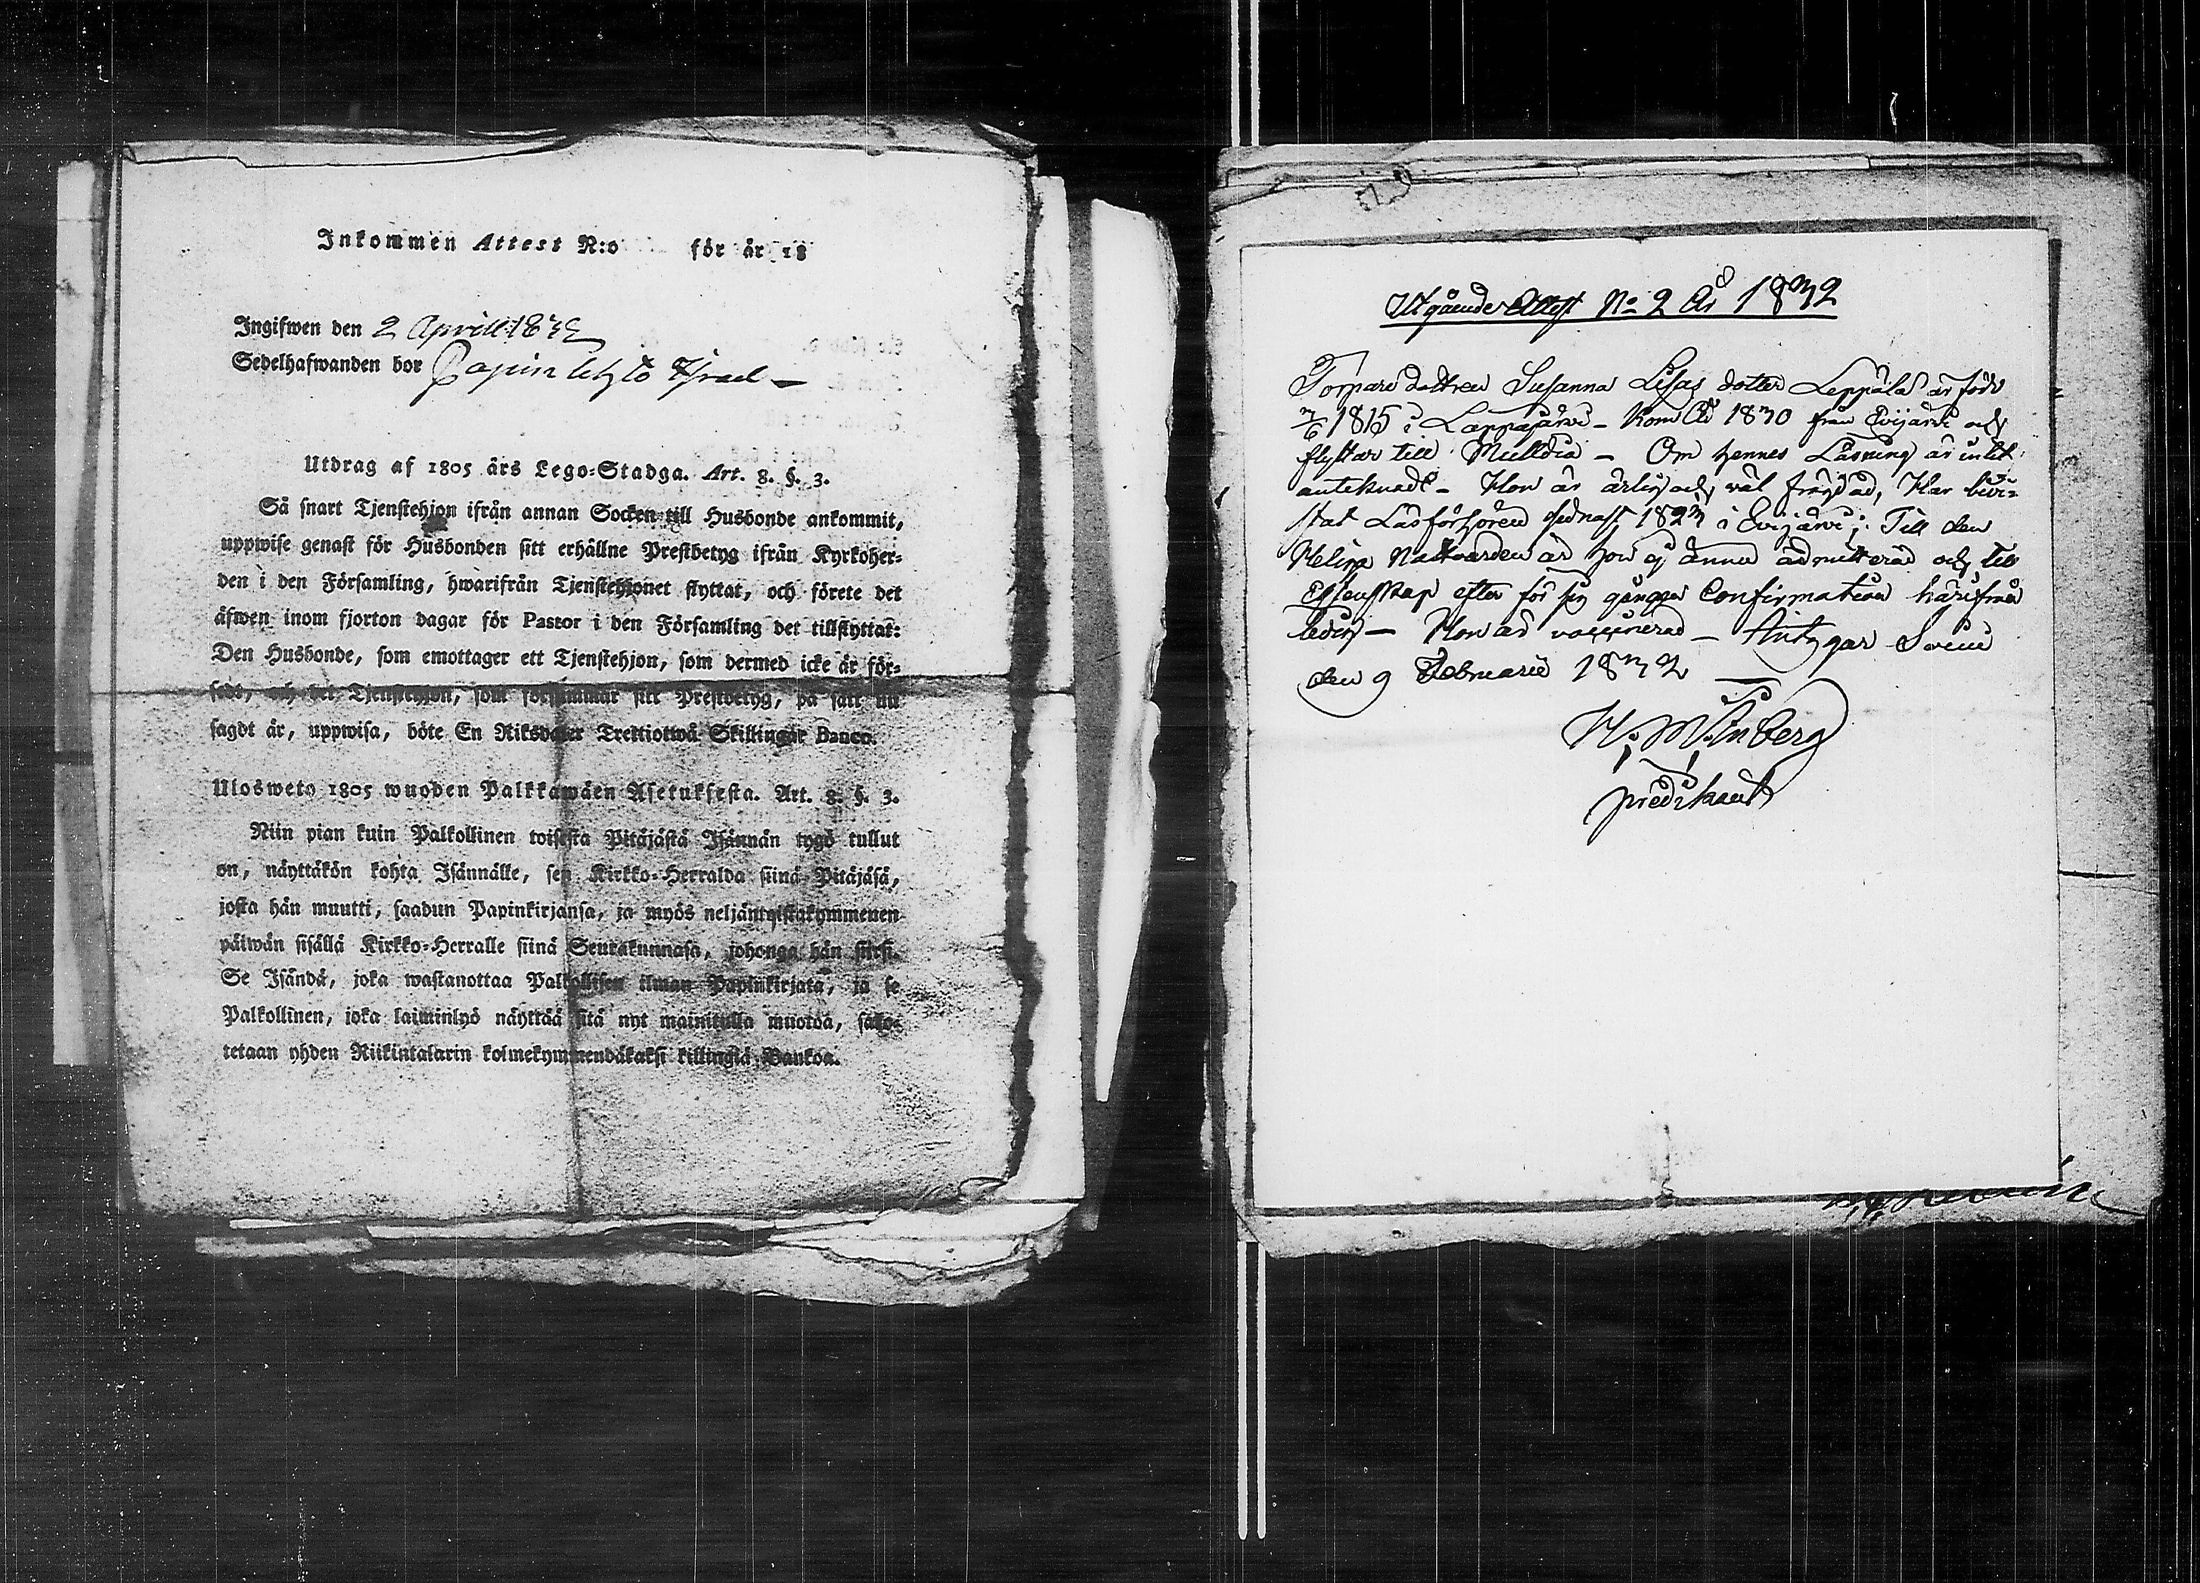 Inkommen Attest N:o för år 18
Ingifwen den 2 Aprill 1832
Sedelhafwanden bor
Utdrag af 1805 års Lego-Stadga. Art. 8. §. 3.
Så snart Tjenstehjon ifrån annan Socken till Husbonde ankommit,
uppwise genast för Husbonden sitt erhållne Prestbetyg ifrån Kyrkoher-
den i den Församling, hwarifrån Tjenstehjonet flyttat, och förete det
äfwen inom fjorton dagar för Pastor i den Församling det tillflyttat:
Den Husbonde, som emottager ett Tjenstehjon, som dermed icke är för-
sedt, och det Tjenstehjon, som försummar sitt Prestbetyg, på sätt nu
sagdt är, uppwisa, böte En Riksdaler Trettiotwå Skillingar Banco.
Ulosweto 1805 wuoden Palkkawäen Asetuksesta. Art. 8. §. 3.
Niin pian kuin Palkollinen toisesta Pitäjästä Isännän tygö tullut
on, näyttäkön kohta Isännälle, sen Kirkko-Herralda siinä Pitäjäsä,
josta hän muutti, saadun Papinkirjansa, ja myös neljäntoistakymmenen
päiwän sisällä Kirkko-Herralle siinä Seurakunnasa, johonga hän siirsi.
Se Isändä, joka wastanottaa Palkollisen ilman Papinkirjata, ja se
Palkollinen, joka laiminlyö näyttää sitä nyt mainitulla muotoa, sako-
tetaan yhden Riikintalarin kolmekymmendäkaksi killingiä Bankoa.
Utgående Attest No 2 År 1832
Torpare dottren Susanna Lisas dotter Leppälä är född
3/6 1815 i Lappajärvi - Kom År 1830 från Evijärvi och
flyttar till Mulldia - Om hennes Läsning är intet
antecknadt - Hon är ärlig och väl frägdad, Har bevi-
stat Läsförhören sednast 1823 i Evijärvi; Till den
Heliga Nattvarden är hon ej ännu admitterad och till
Egtenskap efter för sig gången Confirmation härifrån
ledig - Hon är vaccinerad -
den 9 Februarii 1832